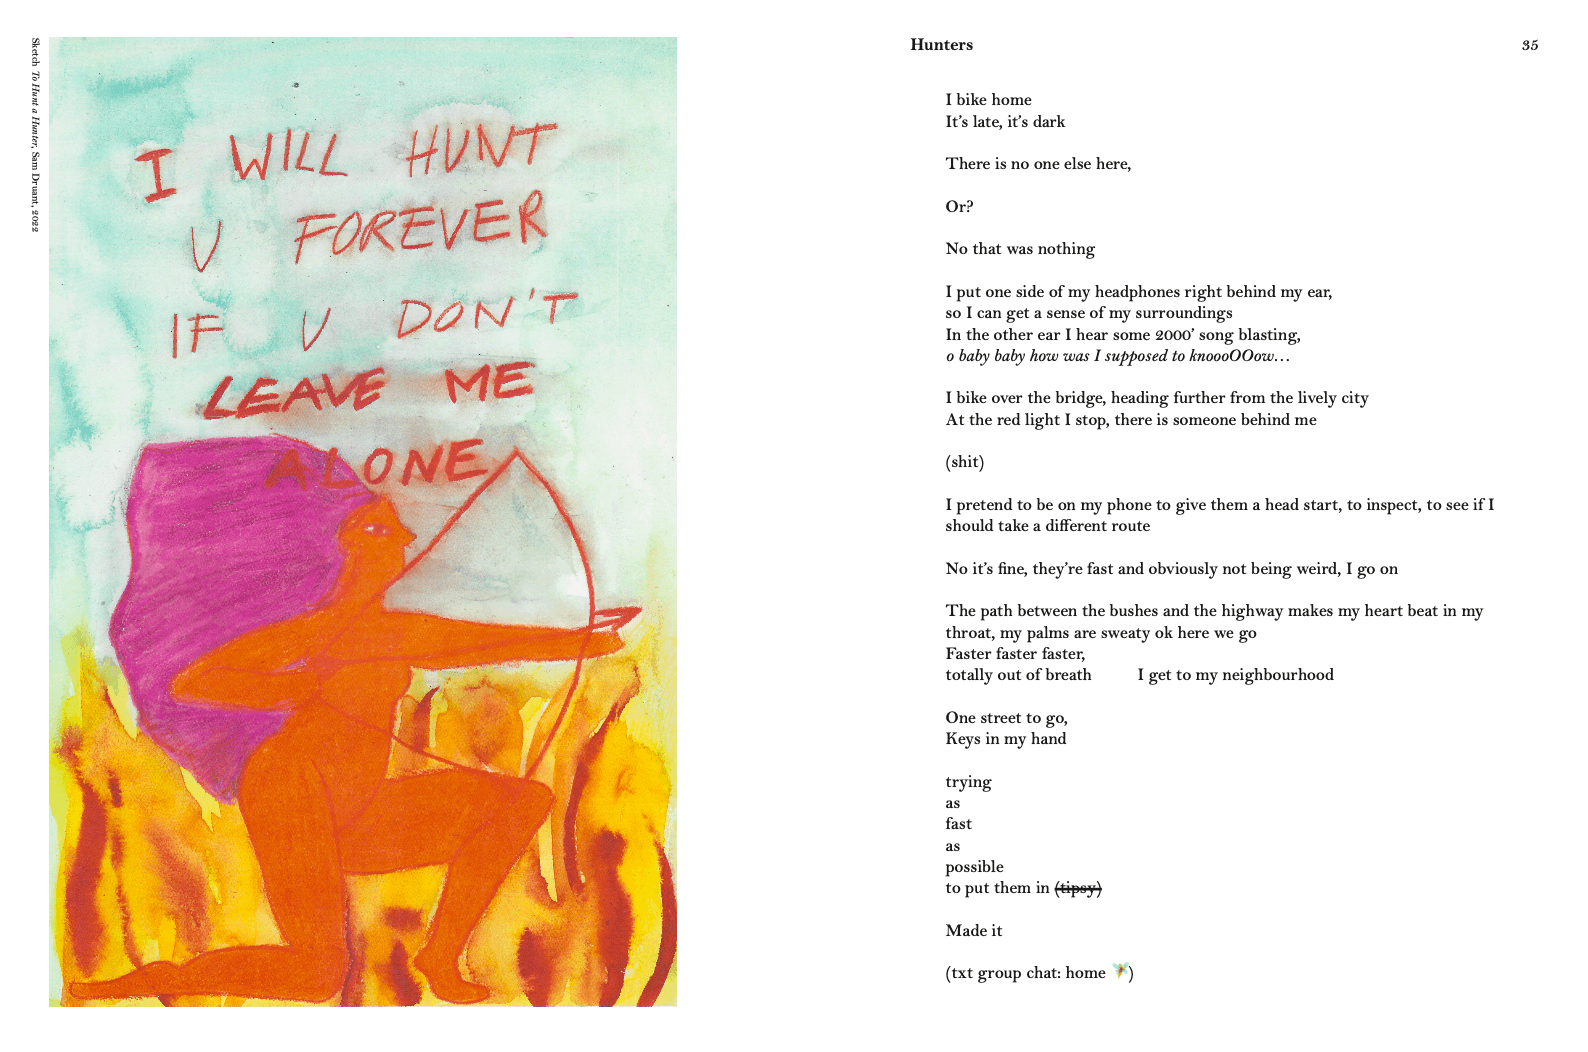 Sketch To Hunt a Hunter, Sam Druant, 2022
I WILL HUNT
U FOREVER
IF U DON'T
LEAVE ME
ALONE
Hunters
35
I bike home
It’s late, it’s dark
There is no one else here,
Or?
No that was nothing
I put one side of my headphones right behind my ear,
so I can get a sense of my surroundings
In the other ear I hear some 2000’ song blasting,
o baby baby how was I supposed to knoooOOow…
I bike over the bridge, heading further from the lively city
At the red light I stop, there is someone behind me
(shit)
I pretend to be on my phone to give them a head start, to inspect, to see if I
should take a different route
No it’s fine, they’re fast and obviously not being weird, I go on
The path between the bushes and the highway makes my heart beat in my
throat, my palms are sweaty ok here we go
Faster faster faster,
totally out of breath I get to my neighbourhood
One street to go,
Keys in my hand
trying
as
fast
as
possible
to put them in (tipsy)
Made it
(txt group chat: home 🧚)